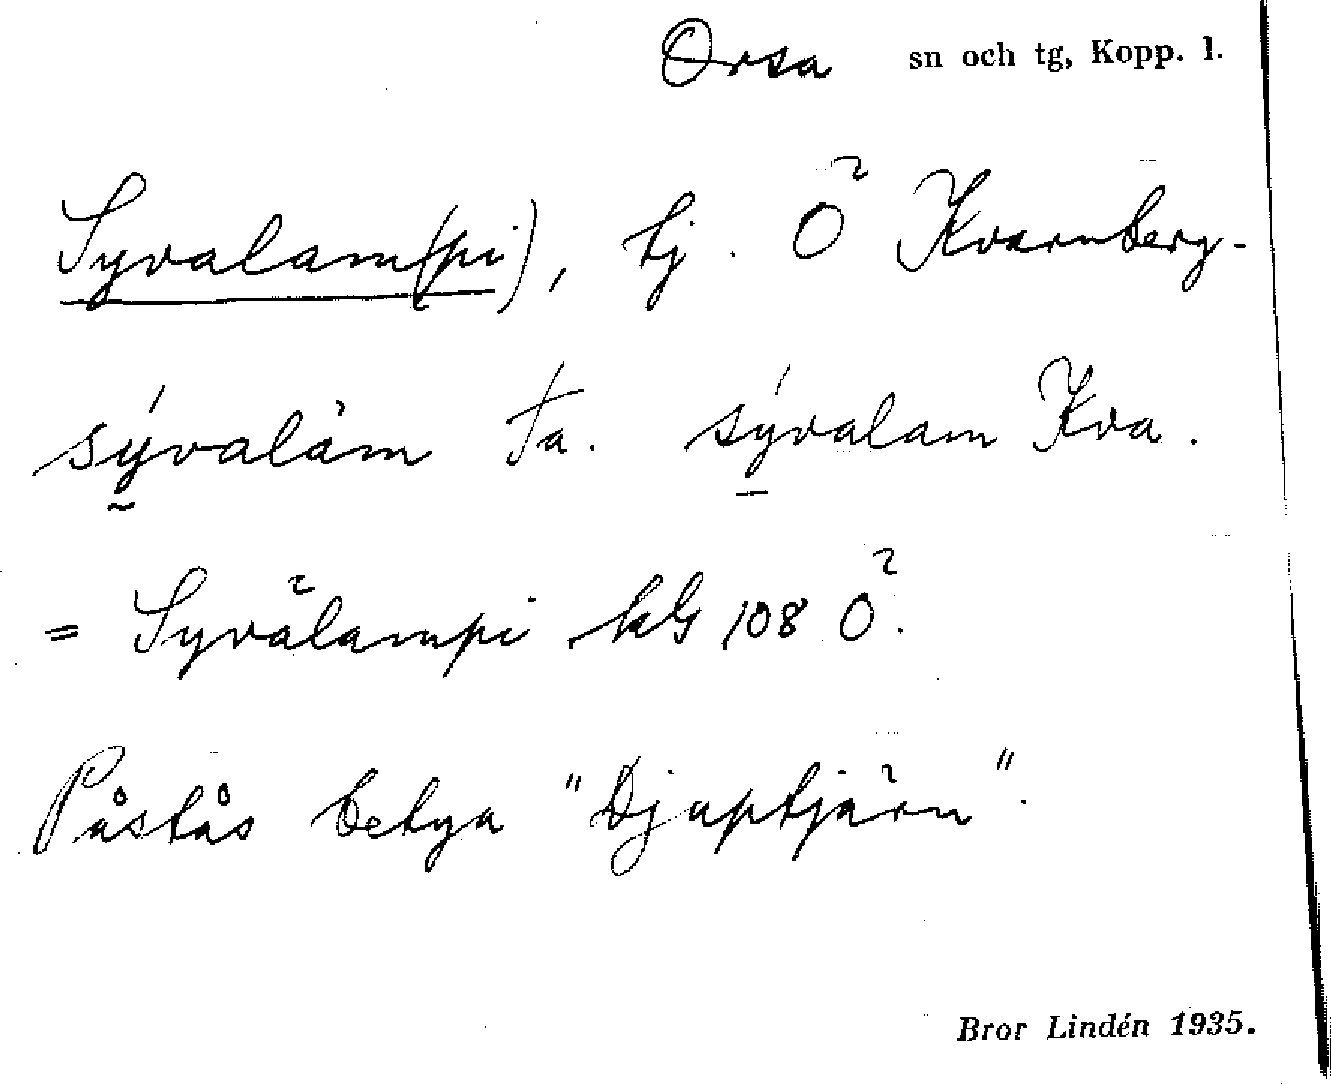 Orsa sn och tg, Kopp. l.
Syvalam(pi), tj. Ö Kvarnberg-
sývalàm Ta. sývalam Kva.
= Syvälampi hG 108 Ö.
Påstås betya "Djuptjärn".
Bror Lindén 1935.